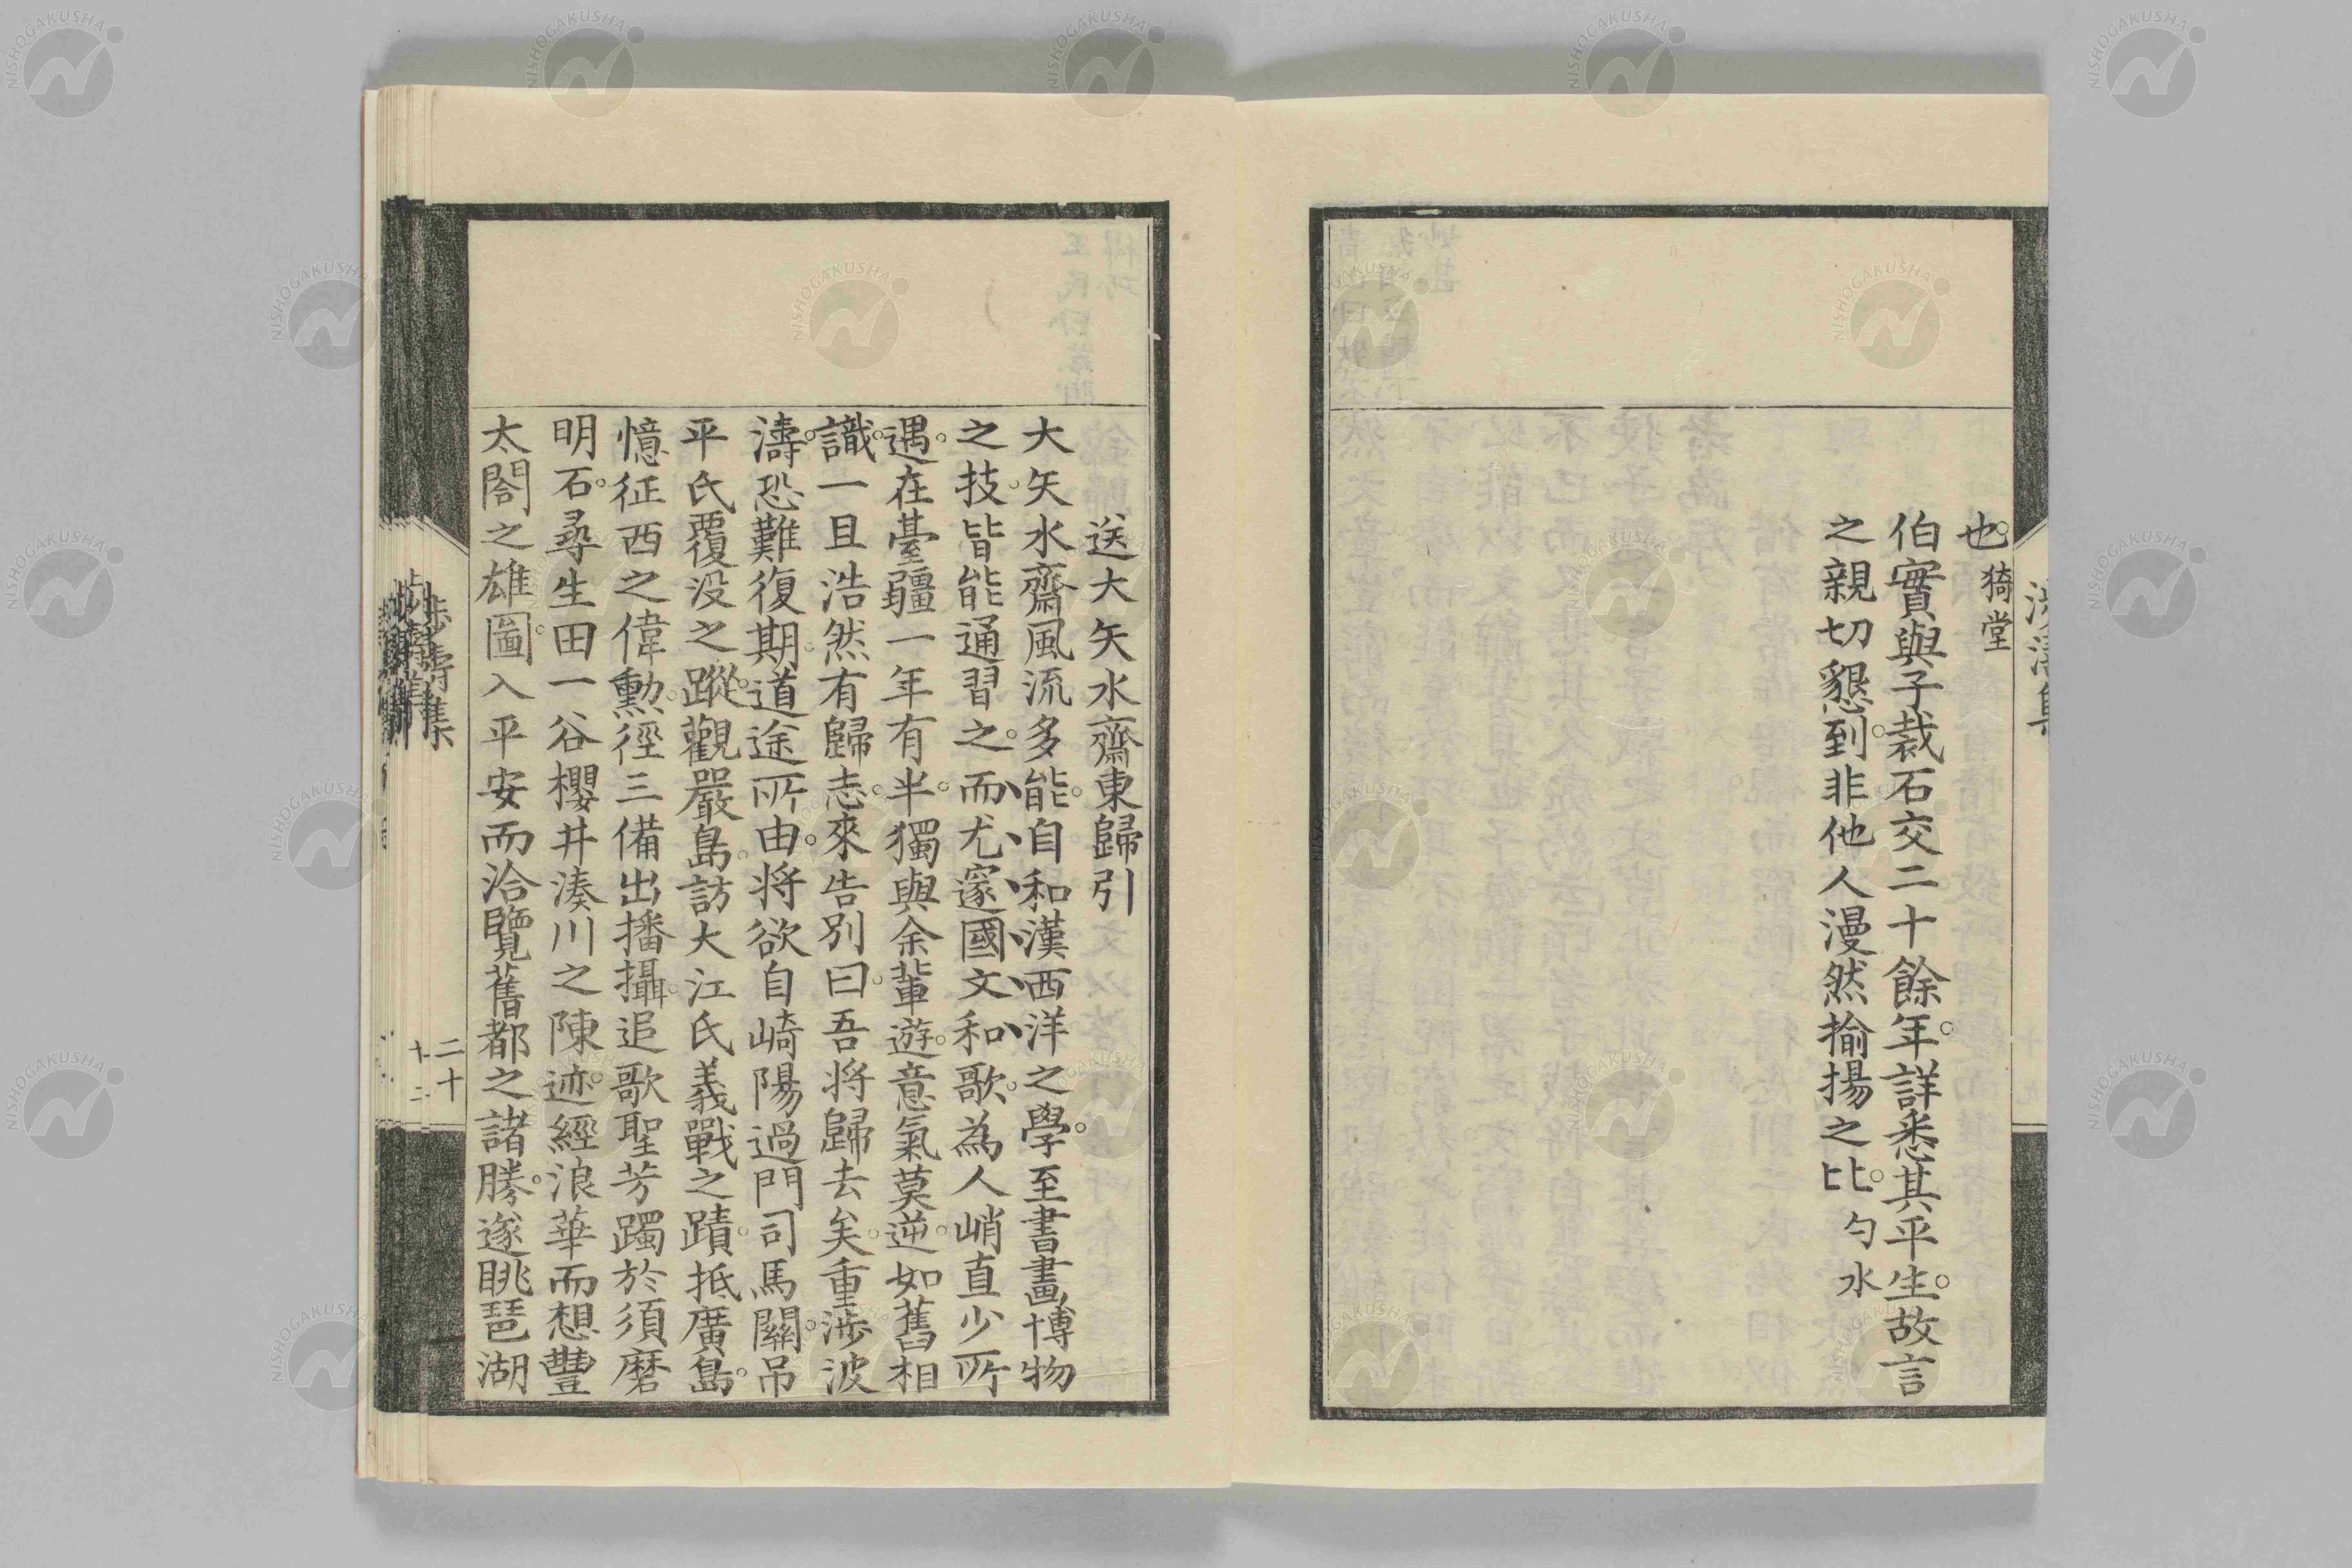 也。猗堂
伯實與子裁石交二十餘年。詳悉其平生。故言
之親切懇到。非他人漫然揄揚之比。勺水
送大矢水齋東歸引
大矢水齋風流多能。自和漢西洋之學。至書畫博物
之技。皆能通習之。而尤邃國文和歌。為人峭直少所
遇。在臺疆一年有半。獨與余輩遊。意氣莫逆。如舊相
識。一旦浩然有歸志。來告別曰。吾將歸去矣。重涉波
濤。恐難復期。道途所由。將欲自崎陽過門司馬關。吊
平氏覆沒之蹤。觀嚴島。訪大江氏義戰之蹟。抵廣島。
憶征西之偉勳。徑三備出播攝。追歌聖芳躅於須磨
明石。尋生田一谷櫻井湊川之陳迹。經浪華而想豐
太閤之雄圖。入平安而洽覽舊都之諸勝。遂眺琵湖
二十